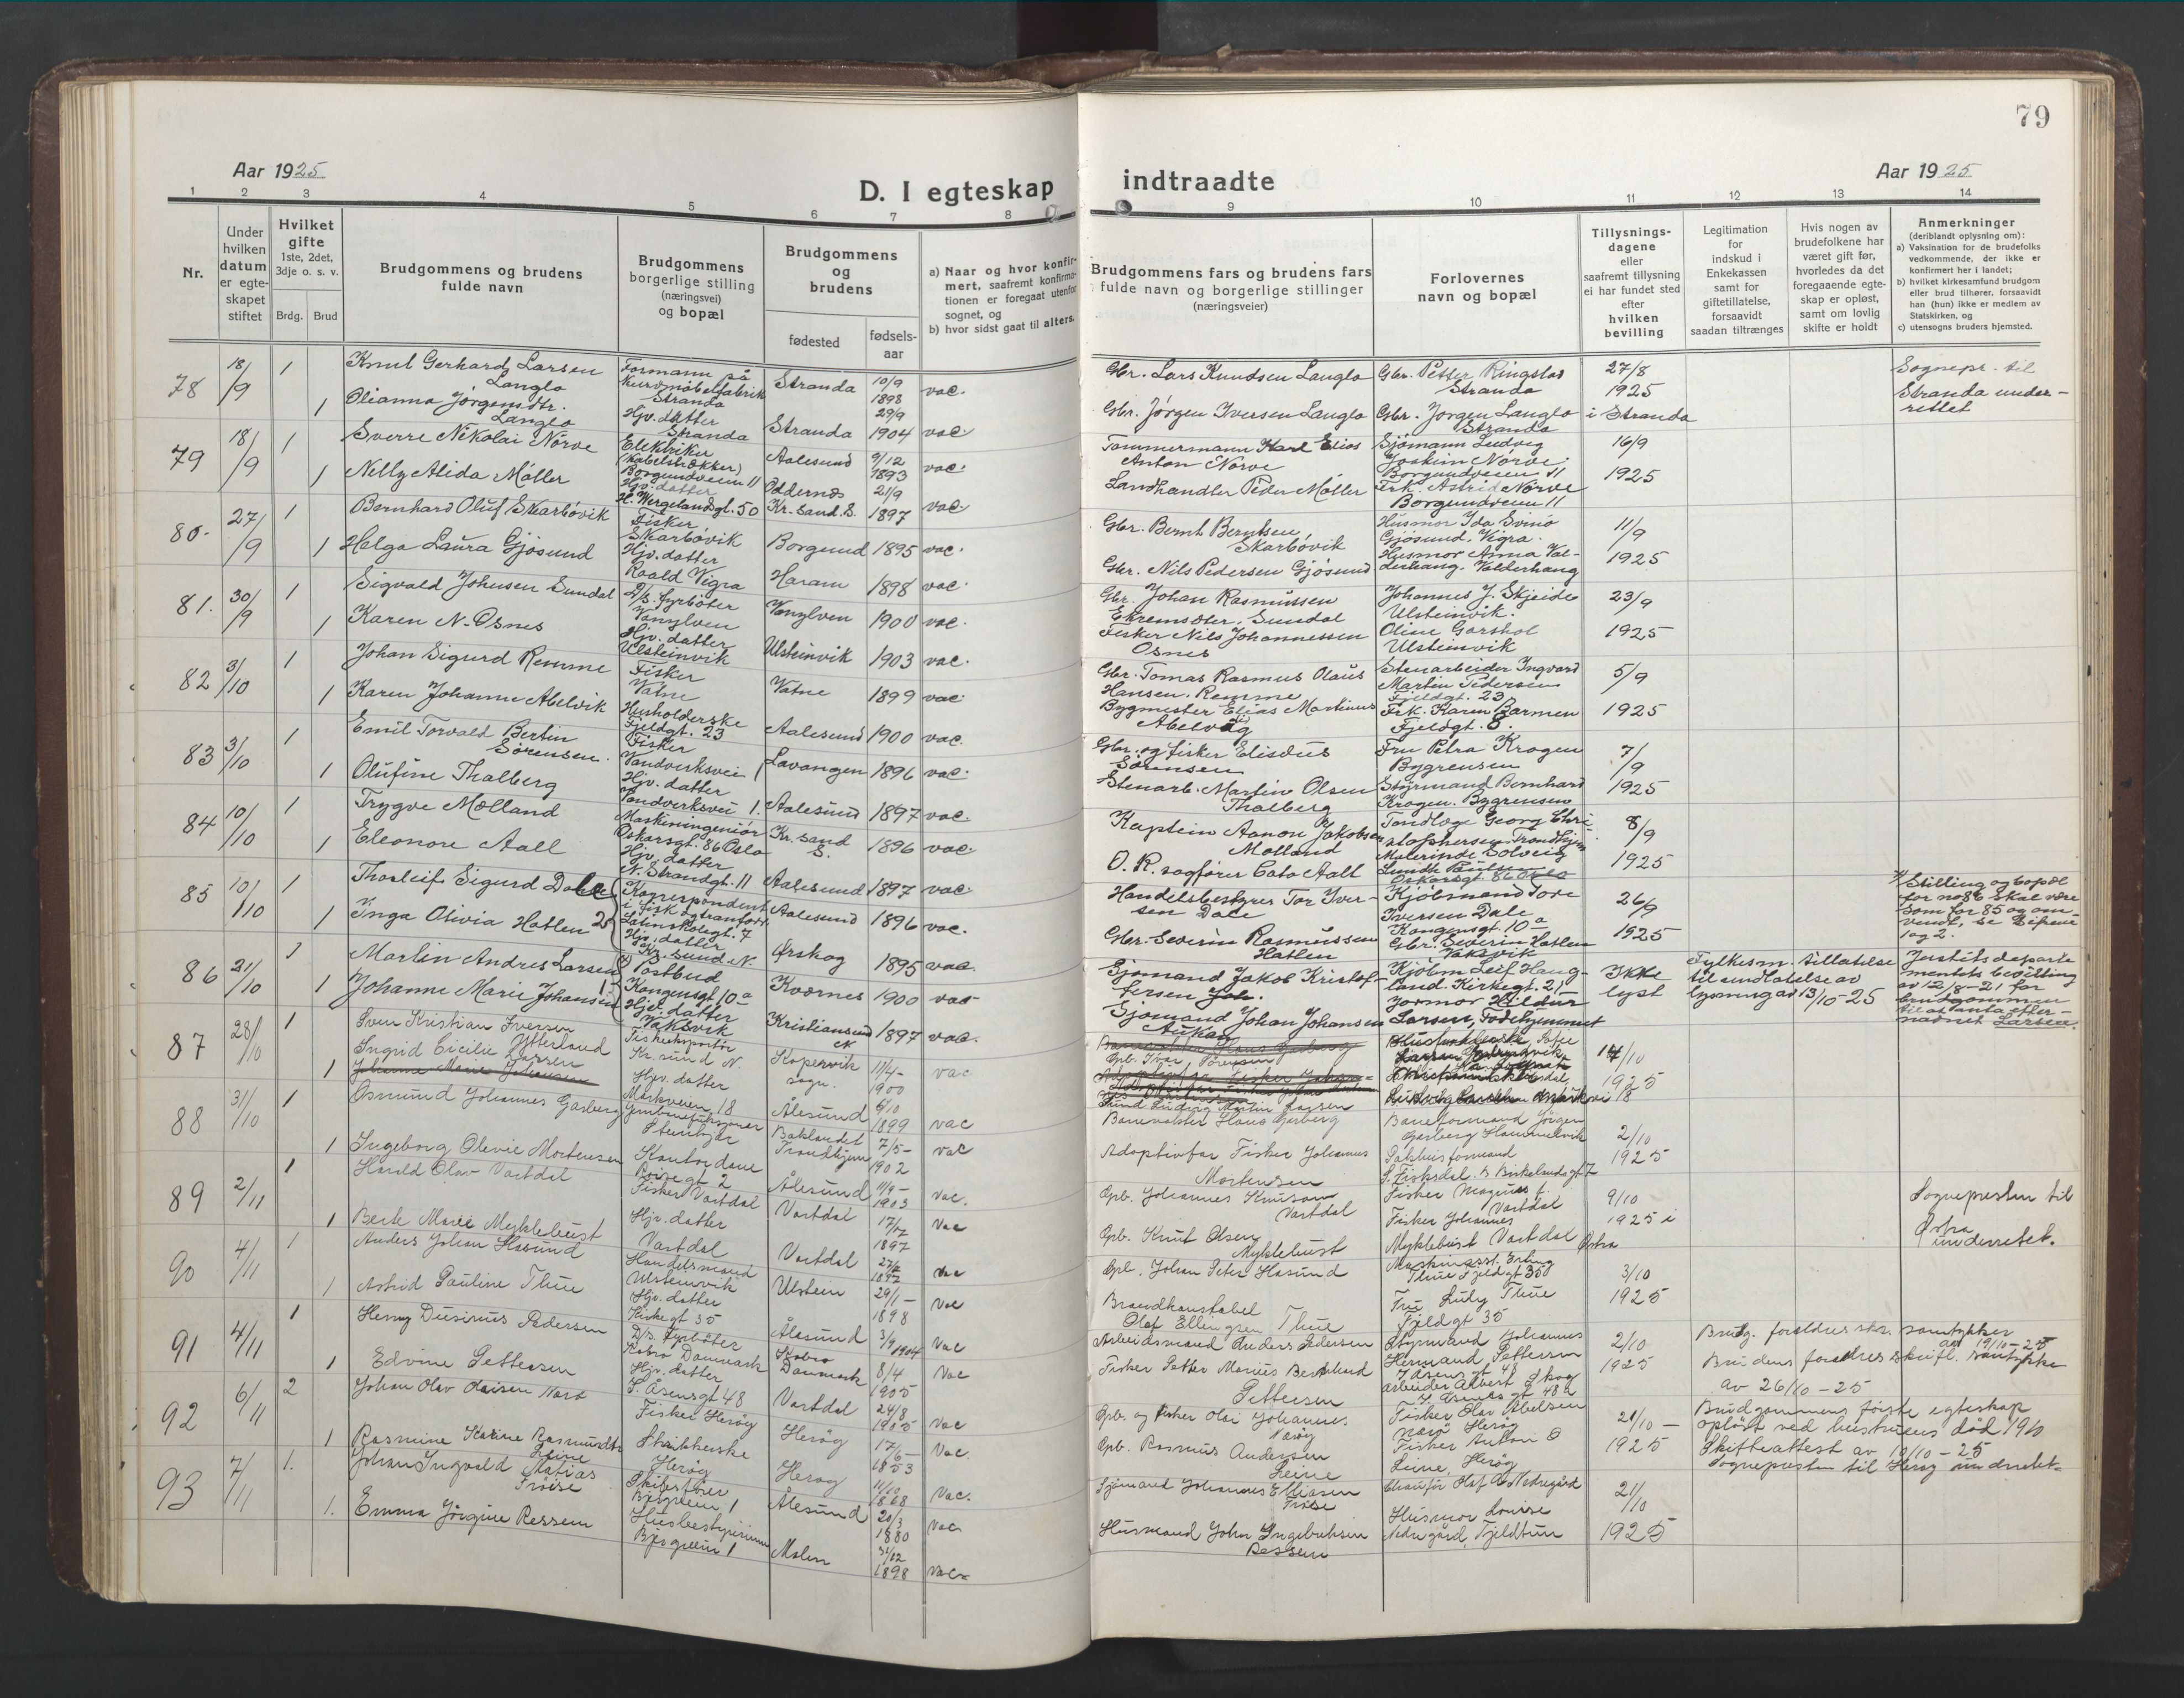 79
Aar 1925
D. I egteskap indtraadte
Aar 1925
1 2 3 4 5 6 7 8 9 10 11 12 13 14
Nr.
Under hvilken datum er egteskapet stiftet
Hvilket gifte 1ste, 2det, 3dje o. s. v.
Brdg. Brud
Brudgommens og brudens fulde navn
Brudgommens borgerlige stilling (næringsvei) og bopæl
Brudgommens og brudens
fødested
fødsels-aar
a) Naar og hvor konfirmert, saafremt konfirmationen er foregaat utenfor sognet, og
b) hvor sidst gaat til alters.
Brudgommens fars og brudens fars fulde navn og borgerlige stillinger (næringsveier)
Forlovernes navn og bopæl
Tillysningsdagene eller saafremt tillysning ei har fundet sted efter hvilken bevilling
Legitimation for indskud i Enkekassen samt for giftetillatelse, forsaavidt saadan tiltrænges
Hvis nogen av brudefolkene har været gift før, hvorledes da det foregaaende egteskap er opløst, samt om lovlig skifte er holdt
Anmerkninger (deriblandt oplysning om):
a) Vaksination for de brudefolks vedkommende, der ikke er konfirmert her i landet;
b) hvilket kirkesamfund brudgom eller brud tilhører, forsaavidt han (hun) ikke er medlem av Statskirken, og
c) utensogns bruders hjemsted.
78 18/9 1 Knut Gerhard Larsen Langlo Formann på Kurvmøbelfabrik Stranda Stranda 10/9 1898 vac. Gbr. Lars Knudsen Langlo Gbr. Petter Ringstad Stranda 27/8 1925 Sognepr. til Stranda underrettet
1 Olianna Jørgensdtr. Langlo Hjv. datter Stranda Stranda 29/9 1904 vac Gbr. Jørgen Iversen Langlo Gbr. Jørgen Langlo Stranda i Stranda
79 18/9 1 Sverre Nikolai Nørve Elektriker (Kabelstrækker) Borgundveien 11 Aalesund 9/12 1893 vac. Tømmermann Karl Elias Anton Nørve Sjømann Ludvig Joakim Nørve Borgundveien 11 16/9 1925
1 Nelly Alida Møller Hjv. datter H. Wergelandsgt. 50 Oddernes Kr.sand. S. 21/9 1897 vac Landhandler Peder Møller Frk. Astrid Nørve Borgundveien 11
80. 27/9 1 Bernhard Oluf Skarbøvik Fisker Skarbøvik Borgund 1895 vac. Gbr. Bernt Berntsen, Skarbøvik Husmor Ida Svinø Gjøsund, Vigra. 11/9 1925
1 Helga Laura Gjøsund Hjv. datter Roald Vigra Haram 1898 vac. Gbr. Nils Pedersen Gjøsund Husmor Anna Valderhaug. Valderhaug
81. 30/9 1 Sigvald Johnsen Sundal D/s. fyrbøter Vanylven Vanylven 1900 vac. Gbr. Johan Rasmussen Ekremsæter, Sundal Johannes J. Skjeide Ulsteinvik. 23/9 1925
1 Karen N. Osnes Hjv. datter Ulsteinvik Ulsteinvik 1903 vac. Fisker Nils Johannessen Osnes Oline Garshol Ulsteinvik
82 3/10 1 Johan Sigurd Remme Fisker Vatne Vatne 1899 vac. Gbr. Tomas Rasmus Olaus Hansen Remme Stenarbeider Ingvard Martin Pedersen Fjeldgt. 23 5/9 1925
1 Karen Johanne Abelvik Husholderske Fjeldgt. 23 Aalesund 1900 vac. Bygmester Elias Martinus Abelvåg Frk. Karen Barmen Fjeldgt. 8.
83 3/10 1 Emil Torvald Bertin Sørensen. Fisker Vandverksvei 1 Lavangen 1896 vac. Gbr. og fisker Elisæus Sørensen Fru Petra Krogen Bygrensen 7/9 1925
1 Olufine Thalberg Hjv. datter Vandverksvei 1. Aalesund 1897 vac. Stenarb. Martin Olsen Thalberg Styrmand Bernhard Krogen. Bygrensen
84 10/10 1 Trygve Molland Maskiningeniør Oskarsgt. 86 Oslo Kr.sand S. 1896 vac. Kaptein Aanon Jakobsen Molland Tandlæge Georg Christophersen, Trondhjem 8/9 1925
1 Eleonore Aall Hjv. datter N. Strandgt. 11 Aalesund 1897 vac. O. R. sagfører Cato Aall Malerinde Solveig Oskarsgt. 86 Oslo
85 10/10 1 Thorleif Sigurd Dale Korrespondent Latinskolegt. 7 Aalesund 1896 vac. Handelsbestyrer Tor Iversen Dale Kjøbmand Tore Iversen Dale Kongensgt. 10 a 26/9 1925 Stilling og bopæl for no 86 skal være som for 85 og omvendt, se 1 og 2.
1 Inga Olivia Hatlen 2) Hjv. datter Kr.sund N. Ørskog 1895 vac. Gbr. Severin Rasmussen Hatlen Gbr. Severin Hatlen Vaksvik
86 21/10 1 Martin Andres Larsen Postbud Kongensgt. 10 a Kvernes 1900 vac Sjømand Jakob Kristoffersen Kjøbm. Leif Haugland. Kirkegt. 21 Ikke lyst Fylkesm. tillatelse til undlatelse av lysning av 13/10-25 Justitsdepartementets bevilling av 12/8-21 for brudgommen til at anta efternavnet Larsen.
1 Johanne Marie Johansen Hjv. datter Vaksvik Kristiansund N 1897 vac. Sjømand Johan Johansen Aukan Jormor Hildur Larsen, Fødehjemmet
87 28/10 1 Sven Kristian Iversen Ytterland Fiskeeksportør Kr.sund N. Kopervik sogn. 11/4- 1900 vac Gbr. Ivar 17/10 1925
1 Ingrid Cicilie Larsen Hjv. datter Markveien 18 Ålesund 6/10 1899 vac Ludvig Martin Larsen
88 31/10 1 Osmund Johannes Garberg Baklandet Trondhjem 7/5- 1902 vac Banevokter Hans Garberg Baneformand Jørgen Garberg Hommelvik 2/10 1925
1 Ingeborg Olevie Mortensen Kontordame gt 2 Ålesund 11/9- 1903 vac. Adoptivfar Fisker Johannes Mortensen
89 2/11 1 Harald Olav Vartdal Fisker Vartdal Vartdal 1897 Vac Gpb. Johannes Knutson Vartdal Fisker Magnus J. Vartdal 9/10 1925 i Ørsta Sognepresten til Ørsta underrettet.
1 Berte Marie Myklebust Hjv. datter Vartdal Vartdal 1897 Vac Gpb. Knut Olsen Myklebust Fisker Johannes Myklebust Vartdal
90 4/11 1 Anders Johan Hasund Handelsmand Ulsteinvik Ulstein 29/1- 1898 Vac Gpb. Johan Peter Hasund Maskinasst. Erling Thue Fjeldgt 35 3/10 1925
1 Astrid Pauline Thue Hjv. datter Kirkegt 35 Ålesund 3/9 1904 Vac Brandkonstabel Olaf Ellingsen Thue Fru Luly Thue Fjeldgt 35
91 4/11 1 Henry Pedersen D/s. fyrbøter Kobro Danmark Kobro Danmark 8/4 1905 Vac Arbeidsmand Anders Pedersen Styrmand Johannes 2/10 1925 Brudg. foreldres skr. samtykke 19/10-25
1 Edvine Pettersen Hjv. datter S. Åsensgt 48 24/8 Vac Fisker Petter Marius Bernhard Pettersen arbeider Albert Skog Brudens foreldres skriftl. samtykke av 26/10-25
92 6/11 2 Johan Olav Olaisen Nærø Fisker Herøy Herøy Vac. Gpb. og fisker Olai Johannes Nærøy Fisker Olav Abelsen Nærø Herøy 21/10 - 1925 Brudgommens første egteskap opløst ved hustruens død 1910 Skifteattest av 10/10-25 Sognepresten til Herøy underrettet
1 Rasmine Karine Rasmusdtr Leine Herøy Herøy 11/10 1868 Vac. Gpb. Rasmus Andersen Leine Fisker Anton O Leine, Herøy
93 7/11 1. Johan Ingvald Matias Frøise Bjørgveien 1 Ålesund 20/3 1880 Vac Sjømand Johannes Eliasen Frøise Chauffør Olaf Nedregård 21/10 1925
1. Emma Jørgine Ressem Husbestyrerinne Bjørgveien 1 Molen 31/12 1898 Vac. Husmand John Ingebrichsen Ressem Husmor Louise Nedregård, Fjeldtun